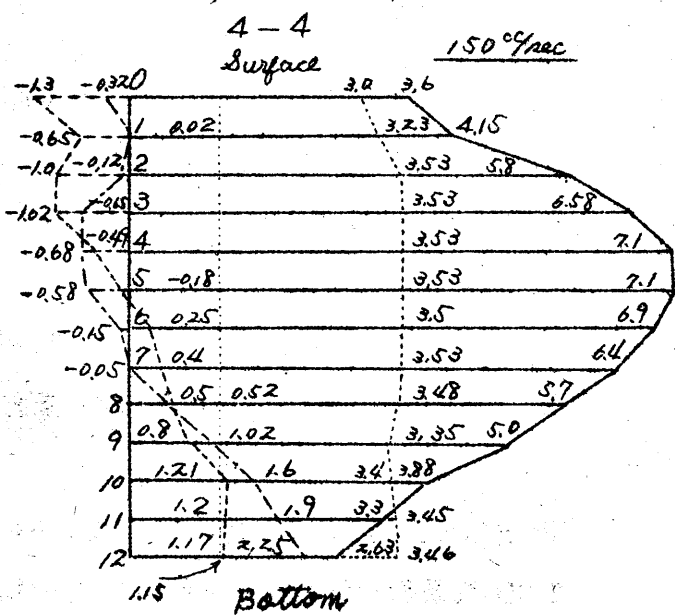 4-4
Surface
150 cc/sec
-1.3 -0.32 0 3.0 3.6
-0.65 1 0.02 3.23 4.15
-1.0 -0.12 2 3.53 5.8
-1.02 -0.65 3 3.53 6.58
-0.68 -0.49 4 3.53 7.1
-0.58 5 -0.18 3.53 7.1
-0.15 6 0.25 3.5 6.9
-0.05 7 0.4 3.53 6.4
8 0.5 0.52 3.48 5.7
9 0.8 1.02 3.35 5.0
10 1.21 1.6 3.4 3.88
11 1.2 1.9 3.3 3.45
12 1.17 2.25 2.63 3.46
1.15
Bottom